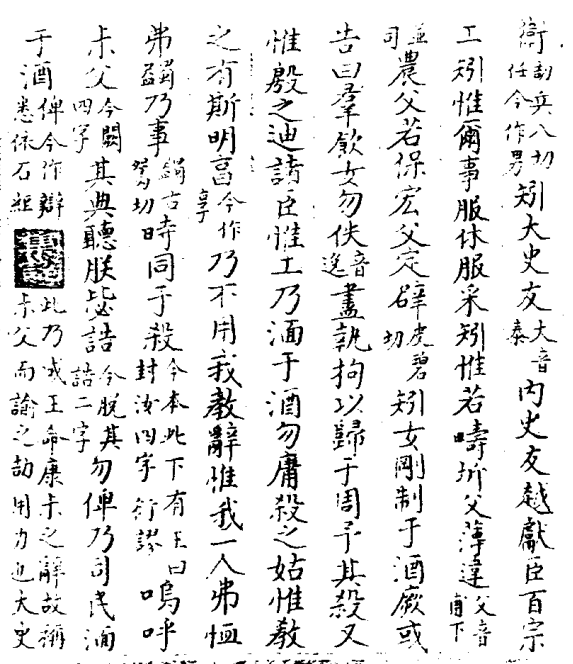 衛劼兵八切任今作男矧大史友大音泰內史友越獻臣百宗
工矧惟爾事服休服采矧惟若疇圻父薄違父音甫下
並司農父若保宏父定辟虎碧切矧女剛制于酒厥或
告曰羣飲女勿佚音逸盡執拘以歸于周予其殺又
惟殷之迪諸臣惟工乃湎于酒勿庸殺之姑惟教
之有斯明亯今作享乃不用我教辭惟我一人弗恤
弗蠲乃事蠲古切時同于殺今本此下有王曰封汝四字衍謬嗚呼
尗父今闕四字其典聽朕毖誥今脫其誥二字勿俾乃司民湎
于酒俾今作辯悉依石經此乃成王命康尗之辭故稱尗父而諭之劼用力也大史